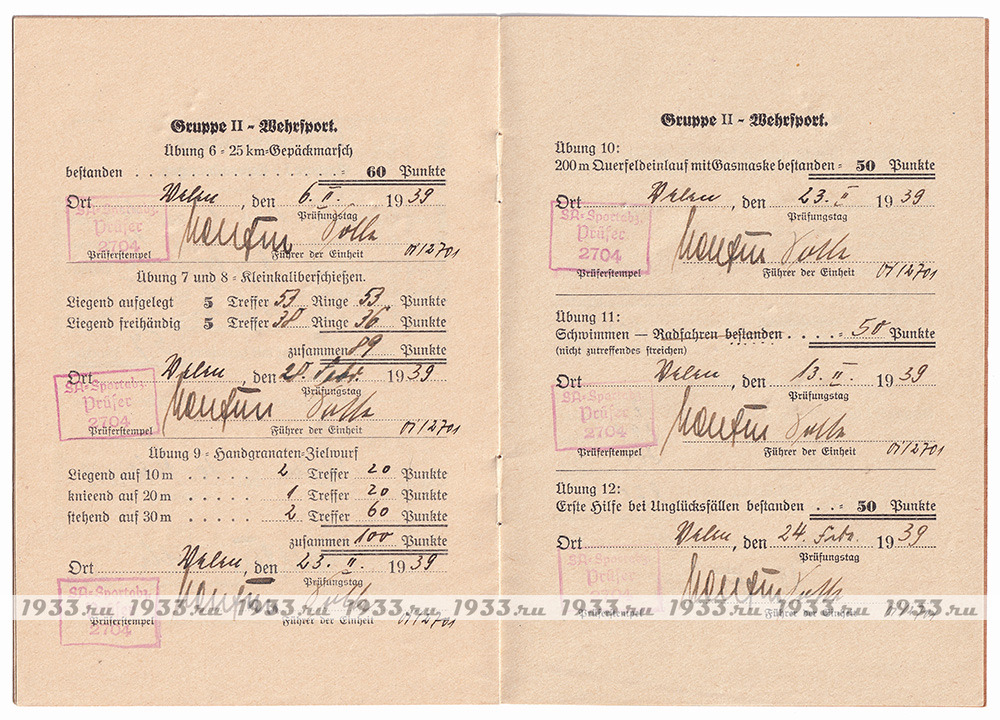 Gruppe II - Wehrsport.
Übung 6 - 25 km-Gepäckmarsch
bestanden . . . . . . . . = 60 Punkte
Ort Velen, den 6. II. 1939
Prüfungstag
SA-Sportabz.
Prüfer
2704
Prüferstempel
Führer der Einheit
Übung 7 und 8 - Kleinkaliberschießen.
Liegend aufgelegt 5 Treffer 53 Ringe 53 Punkte
Liegend freihändig 5 Treffer 38 Ringe 36 Punkte
zusammen 89 Punkte
Ort Velen, den 21. Febr. 1939
Prüfungstag
SA-Sportabz.
Prüfer
2704
Prüferstempel
Führer der Einheit
Übung 9 - Handgranaten-Zielwurf
Liegend auf 10 m . . . . . 2 Treffer 20 Punkte
knieend auf 20 m . . . . . 1 Treffer 20 Punkte
stehend auf 30 m . . . . . 2 Treffer 60 Punkte
zusammen 100 Punkte
Ort Velen, den 23. II. 1939
Prüfungstag
SA-Sportabz.
Prüfer
2704
Prüferstempel
Führer der Einheit
Gruppe II - Wehrsport.
Übung 10:
200 m Querfeldeinlauf mit Gasmaske bestanden = 50 Punkte
Ort Velen, den 23. II 1939
Prüfungstag
SA-Sportabz.
Prüfer
2704
Prüferstempel
Führer der Einheit
Übung 11:
Schwimmen — Radfahren bestanden . . . . = 50 Punkte
(nicht zutreffendes streichen)
Ort Velen, den 13. II. 1939
Prüfungstag
SA-Sportabz.
Prüfer
2704
Prüferstempel
Führer der Einheit
Übung 12:
Erste Hilfe bei Unglücksfällen bestanden . . = 50 Punkte
Ort Velen, den 24. Febr. 1939
Prüfungstag
SA-Sportabz.
Prüfer
2704
Prüferstempel
Führer der Einheit
1933.ru 1933.ru 1933.ru 1933.ru 1933.ru 1933.ru 1933.ru 1933.ru 1933.ru